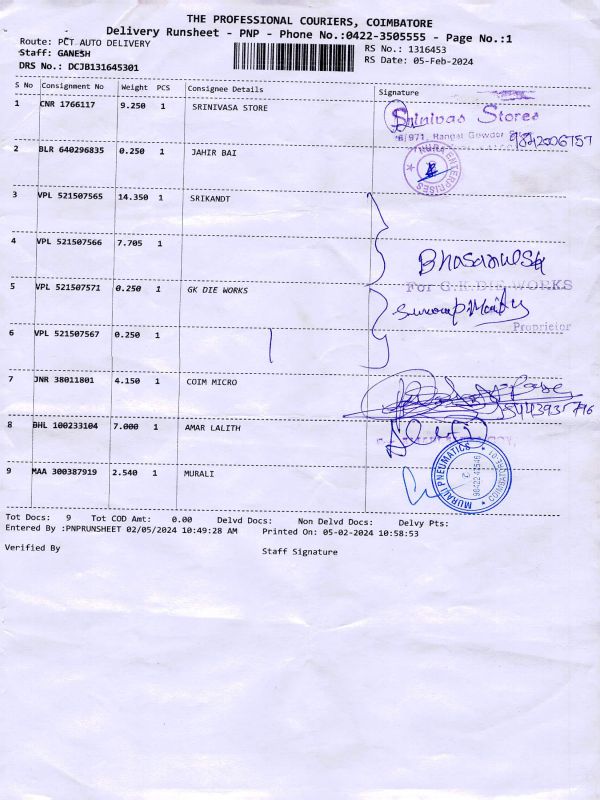 THE PROFESSIONAL COURIERS, COIMBATORE
Delivery Runsheet - PNP - Phone No.:0422-3505555 - Page No.:1
Route: PCT AUTO DELIVERY
RS No.: 1316453
Staff: GANESH
RS Date: 05-Feb-2024
DRS No.: DCJB131645301
S No Consignment No Weight PCS Consignee Details Signature
1 CNR 1766117 9.250 1 SRINIVASA STORE
Srinivas Stores
9842006757
2 BLR 640296835 0.250 1 JAHIR BAI
ENTERPRISES
3 VPL 521507565 14.350 1 SRIKANDT
4 VPL 521507566 7.705 1
5 VPL 521507571 0.250 1 GK DIE WORKS
For G.K DIE WORKS
Proprietor
6 VPL 521507567 0.250 1
7 JNR 38011801 4.150 1 COIM MICRO
8 BHL 100233104 7.000 1 AMAR LALITH
9 MAA 300387919 2.540 1 MURALI
MURALI PNEUMATICS
Tot Docs: 9 Tot COD Amt: 0.00 Delvd Docs: Non Delvd Docs: Delvy Pts:
Entered By :PNPRUNSHEET 02/05/2024 10:49:28 AM Printed On: 05-02-2024 10:58:53
Verified By Staff Signature